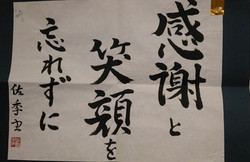 感謝と
笑顔を
忘れずに
佐季書